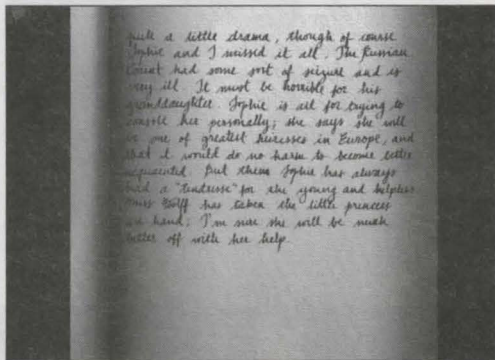 quite a little drama, though of course
Sophie and I missed it all. The Russian
Count had some sort of seizure and is
very ill. It must be horrible for his
granddaughter. Sophie is all for trying to
console her personally; she says she will
be one of greatest heiresses in Europe, and
that it would do no harm to become better
acquainted. But then Sophie has always
had a "tendresse" for the young and helpless
Miss Wolff has taken the little princess
in hand; I'm sure she will be much
better off with her help.